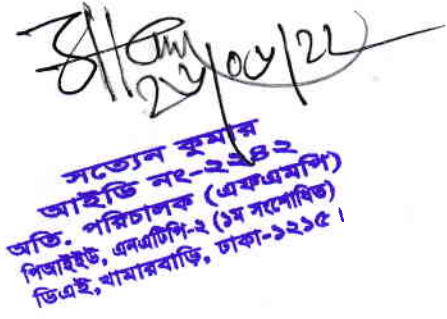 সত্যেন কুমার
আইডি নং-২২৪২
অতি. পরিচালক (এফএমপি)
পিআইইউ, এনএটিপি-২ (১ম সংশোধিত)
ডিএই,খামারবাড়ি, ঢাকা-১২১৫।